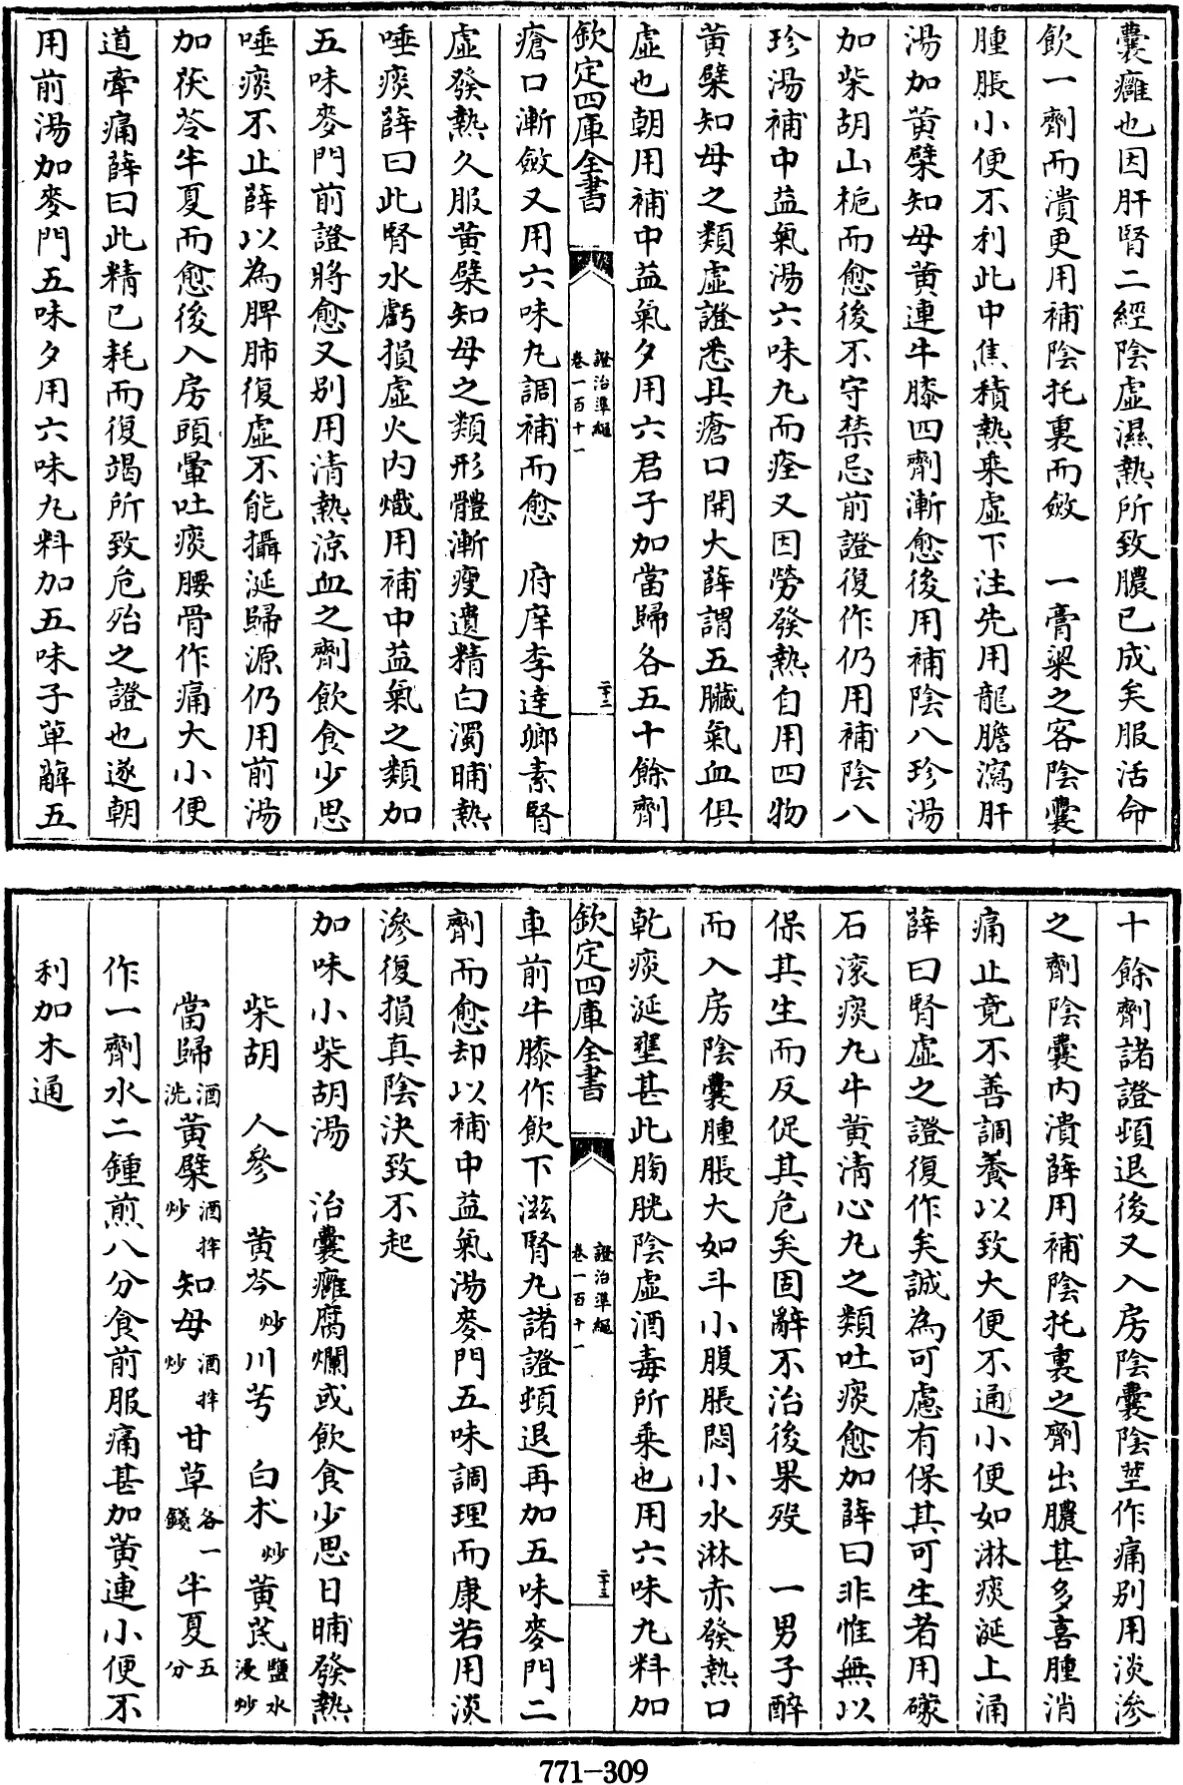 囊癰也因肝腎二經陰虛濕熱所致膿已成矣服活命
飲一劑而潰更用補陰托裏而斂　一膏粱之客陰囊
腫脹小便不利此中焦積熱乘虛下注先用龍膽瀉肝
湯加黃檗知母黃連牛膝四劑漸愈後用補陰八珍湯
加柴胡山梔而愈後不守禁忌前證復作仍用補陰八
珍湯補中益氣湯六味丸而痊又因勞發熱自用四物
黃檗知母之類虛證悉具瘡口開大薛謂五臟氣血俱
虛也朝用補中益氣夕用六君子加當歸各五十餘劑
欽定四庫全書
證治準繩
卷一百十一
二十二
瘡口漸斂又用六味丸調補而愈　府庠李達卿素腎
虛發熱久服黃檗知母之類形體漸瘦遺精白濁晡熱
唾痰薛曰此腎水虧損虛火內熾用補中益氣之類加
五味麥門前證將愈又別用清熱涼血之劑飲食少思
唾痰不止薛以為脾肺復虛不能攝涎歸源仍用前湯
加茯苓半夏而愈後入房頭暈吐痰腰骨作痛大小便
道牽痛薛曰此精已耗而復竭所致危殆之證也遂朝
用前湯加麥門五味夕用六味丸料加五味子萆薢五
十餘劑諸證頓退後又入房陰囊陰莖作痛別用淡滲
之劑陰囊內潰薛用補陰托裏之劑出膿甚多喜腫消
痛止竟不善調養以致大便不通小便如淋痰涎上涌
薛曰腎虛之證復作矣誠為可慮有保其可生者用礞
石滾痰丸牛黃清心丸之類吐痰愈加薛曰非惟無以
保其生而反促其危矣固辭不治後果歿　一男子醉
而入房陰囊腫脹大如斗小腹脹悶小水淋赤發熱口
乾痰涎壅甚此膀胱陰虛酒毒所乘也用六味丸料加
欽定四庫全書
證治準繩
卷一百十一
二十三
車前牛膝作飲下滋腎丸諸證頓退再加五味麥門二
劑而愈却以補中益氣湯麥門五味調理而康若用淡
滲復損真陰決致不起
加味小柴胡湯　治囊癰腐爛或飲食少思日晡發熱
柴胡　人參　黃芩炒川芎　白朮炒黃芪鹽水浸炒
當歸酒洗黃檗酒拌炒知母酒拌炒甘草各一錢半夏五分
作一劑水二鍾煎八分食前服痛甚加黃連小便不
利加木通
771-309